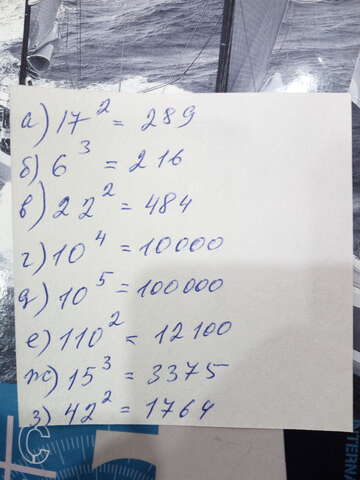 а) 17² = 289
б) 6³ = 216
в) 22² = 484
г) 10⁴ = 10000
д) 10⁵ = 100000
е) 110² = 12100
ж) 15³ = 3375
з) 42² = 1764
C
INTERN